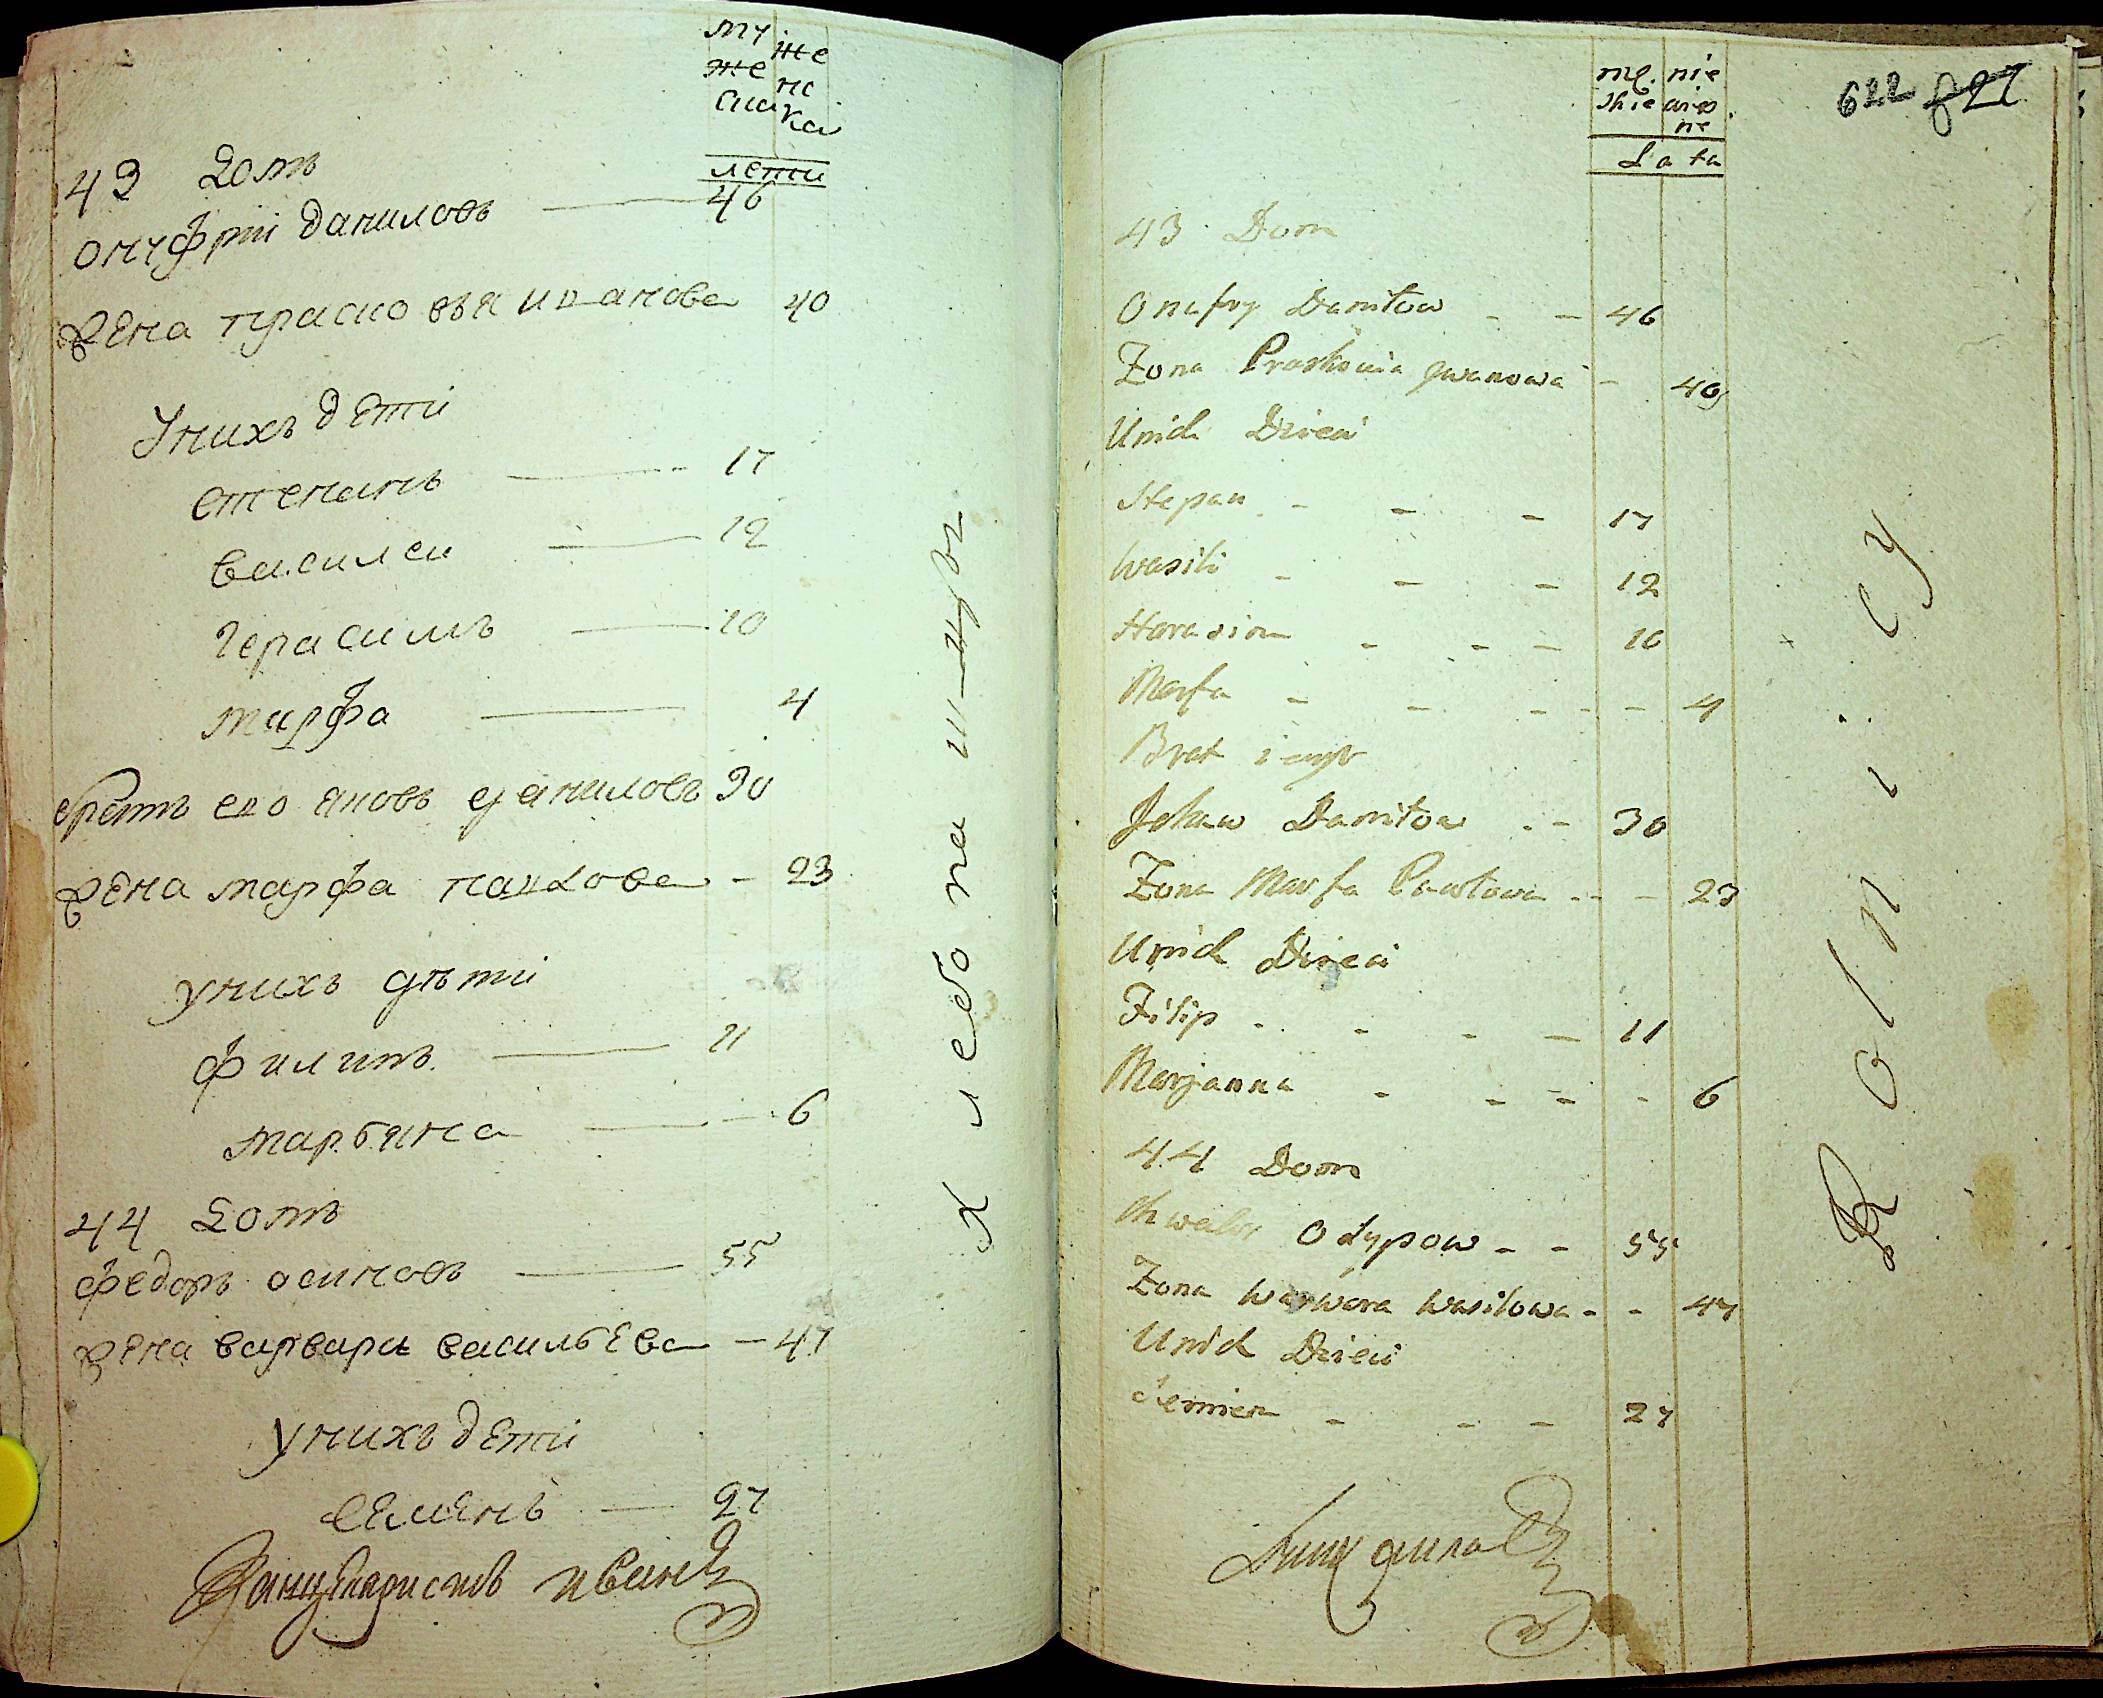 му же
же нс
ски кая
лети
43 Домъ
онуфрій даниловъ — 46
жена прасковья иванова 40
Унихъ дети
степанъ — 17
василеи — 12
герасимъ — 10
марфа — 4
братъ его яковъ даниловъ 30
жена марфа павлова — 23
унихъ дѣти
филипъ — 11
марьяна — 6
44 Домъ
федоръ осиповъ — 55
жена варвара васильева — 47
унихъ дети
семенъ — 27
Канцеляристъ
Хлебопашцы
622 827
mę. nie
skie wias
ne
Lata
43 Dom
Onufry Daniłow - - 46
Zona Praskowia Jwanowa - 40
Unich Dzieci
Stepan - - - 17
Wasili - - - 12
Harasim - - - 10
Marfa - - - - - 4
Brat iego
Jakow Daniłow - - 30
Zona Marfa Pawłowa - - - 23
Unich Dzieci
Filip - - - - 11
Marjanna - - - - 6
44 Dom
Osypow - - 55
Zona Warwara Wasilowa - - 47
Unich Dzieci
Semien - - - 27
Rolnicy